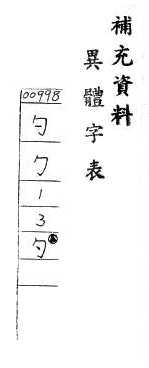 補充資料
異體字表
00998
勺
勹
1
3
勺